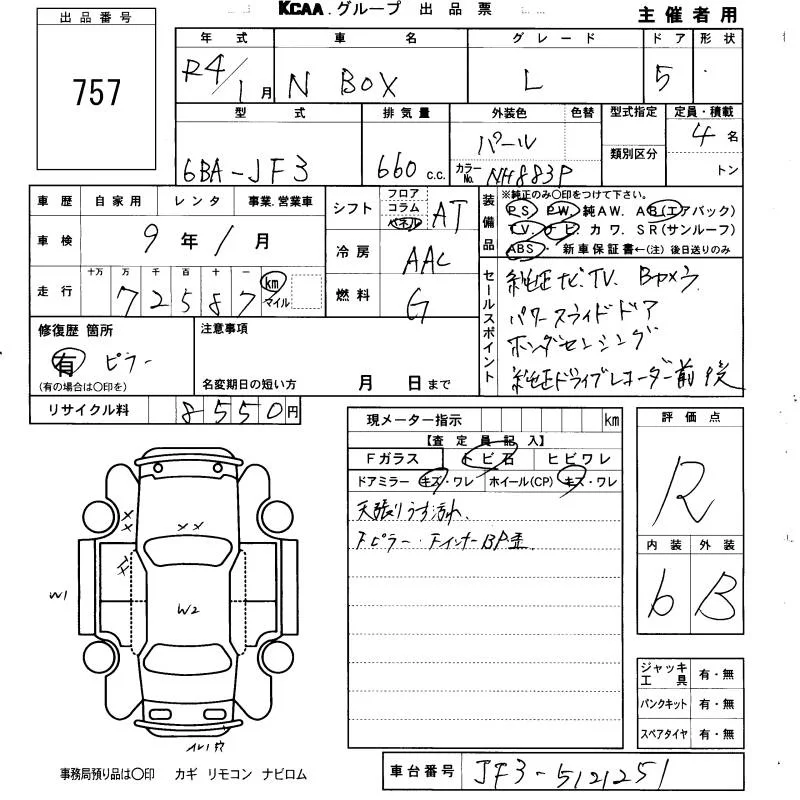 KCAA.グループ 出品票
主催者用
出品番号
757
年式 車名 グレード ドア 形状
R4/1月 N BOX L 5
型式 排気量 外装色 色替 型式指定 定員・積載
6BA-JF3 660 c.c. パール 4 名
カラーNo. NH883P 類別区分 トン
車歴 自家用 レンタ 事業.営業車
車検 9年1月
走行 十万 万 千 百 十 一
7 2 5 8 7 km マイル
シフト フロア コラム パネル AT
冷房 AAC
燃料 G
装備品 ※純正のみ〇印をつけて下さい。
PS PW 純AW. AB(エアバック)
TV ナビ カワ. SR(サンルーフ)
ABS・新車保証書←(注) 後日送りのみ
セールスポイント
純正ナビ.TV. Bカメラ
パワースライドドア
ホンダセンシング
純正ドライブレコーダー前後
修復歴 箇所
有 ピラー
(有の場合は〇印を)
注意事項
名変期日の短い方 月 日まで
リサイクル料 8550円
現メーター指示 km
【査定員記入】
Fガラス トビ石 ヒビワレ
ドアミラー キズ・ワレ ホイール(CP) キズ・ワレ
天張りうす汚れ.
Fピラー・FインナーBP歪
評価点
R
内装 外装
6 B
XX
XX
XX
W1
W2
ジャッキ工具 有・無
パンクキット 有・無
スペアタイヤ 有・無
事務局預り品は〇印 カギ リモコン ナビロム
車台番号 JF3-5121251